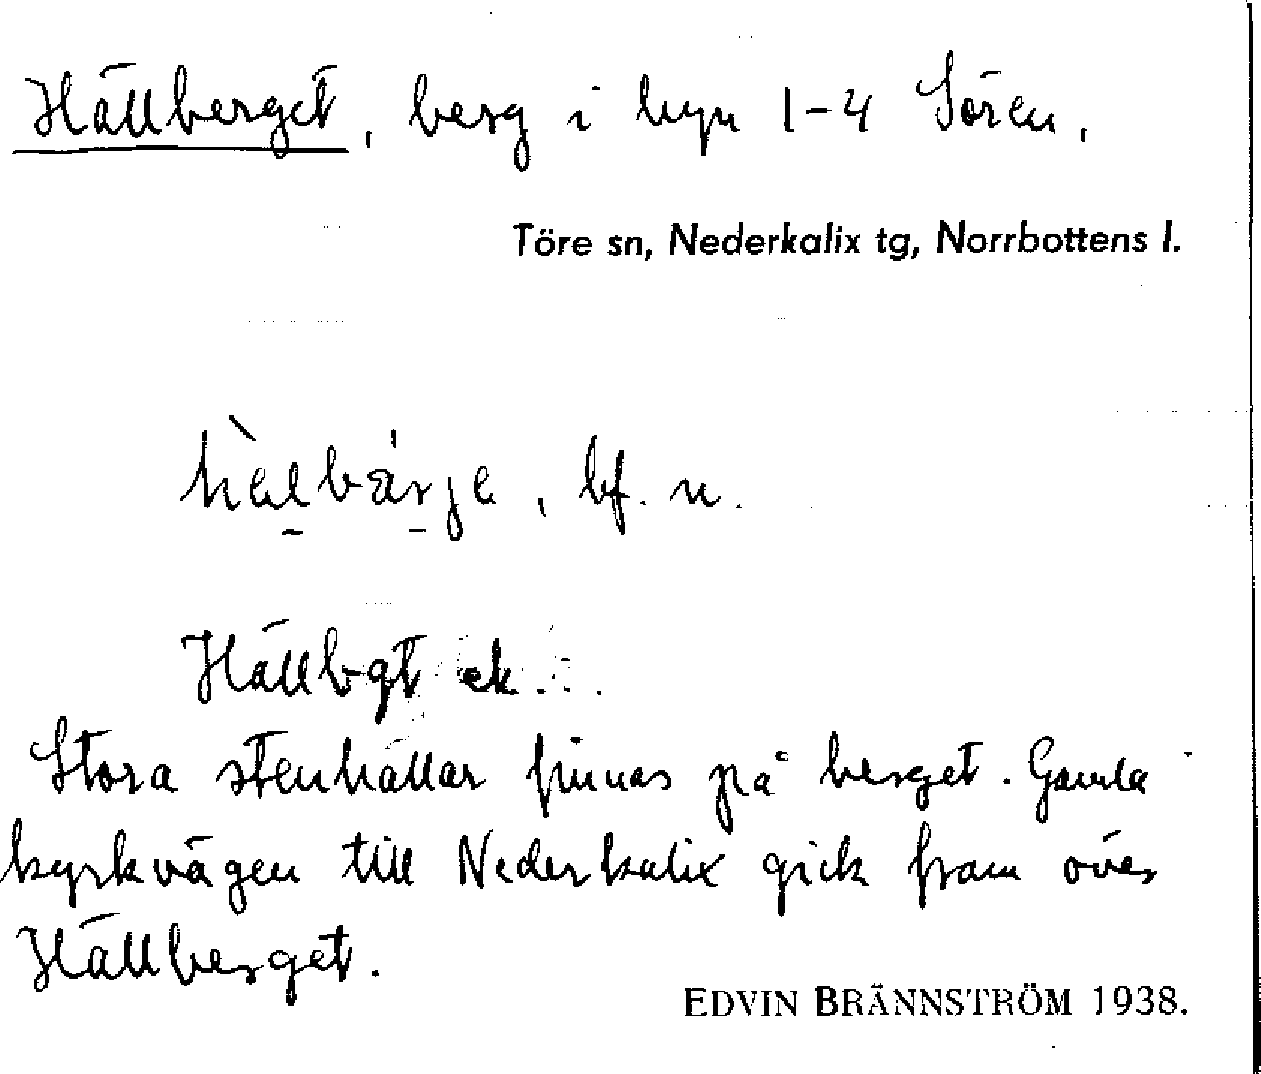 Hällberget, berg i byn 1-4 Sören.
Töre sn, Nederkalix tg, Norrbottens l.
bf. n.
Hällbgt ek.
Stora stenhällar finnas på berget. Gamla
kyrkvägen till Nederkalix gick fram över
Hällberget.
EDVIN BRÄNNSTRÖM 1938.